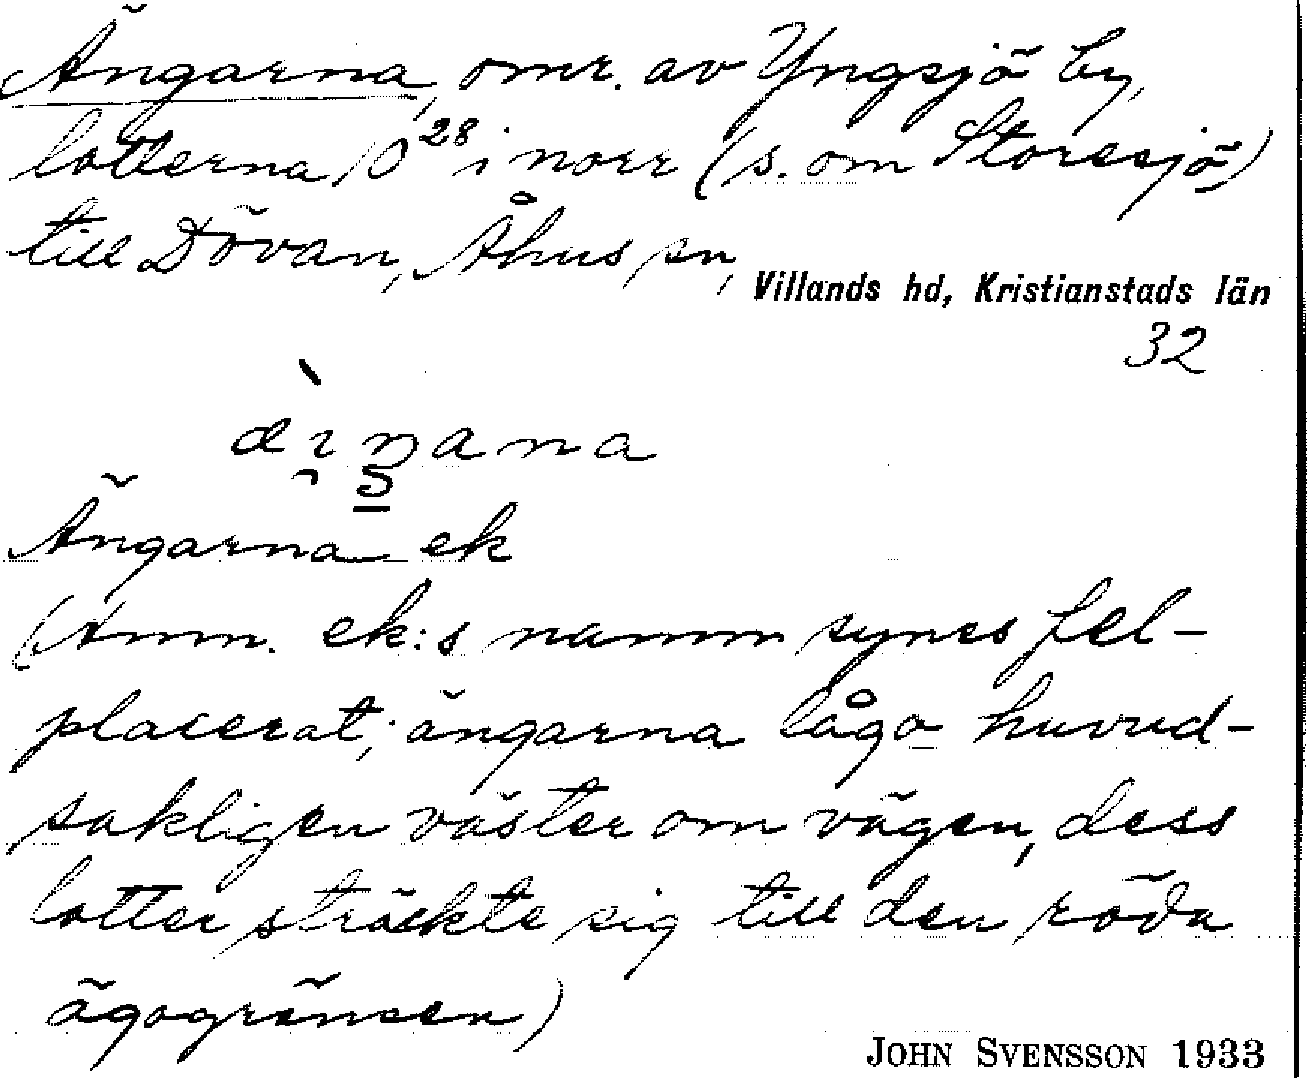 Ängarna, omr. av Yngsjö by,
lotterna 10²⁸ i norr (s. om Storesjö)
till Dövan, Åhus sn,
Villands hd, Kristianstads län
32
Ängarna ek
(Anm. ek:s namn synes fel-
placerat; ängarna lågo huvud-
sakligen väster om vägen, dess
lotter sträckte sig till den röda
ägogränsen)
JOHN SVENSSON 1933